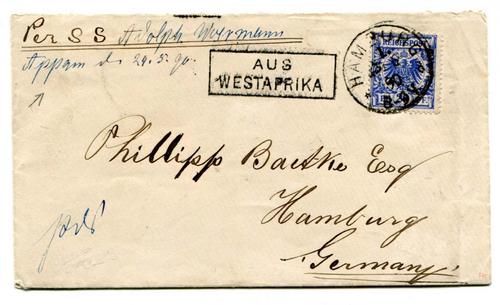 Per SS Adolph Woermann
Appam d. 29.5.90.
AUS
WESTAFRIKA
HAMBURG
REICHSPOST
Phillipp Baetke Esq
Hamburg
Germany